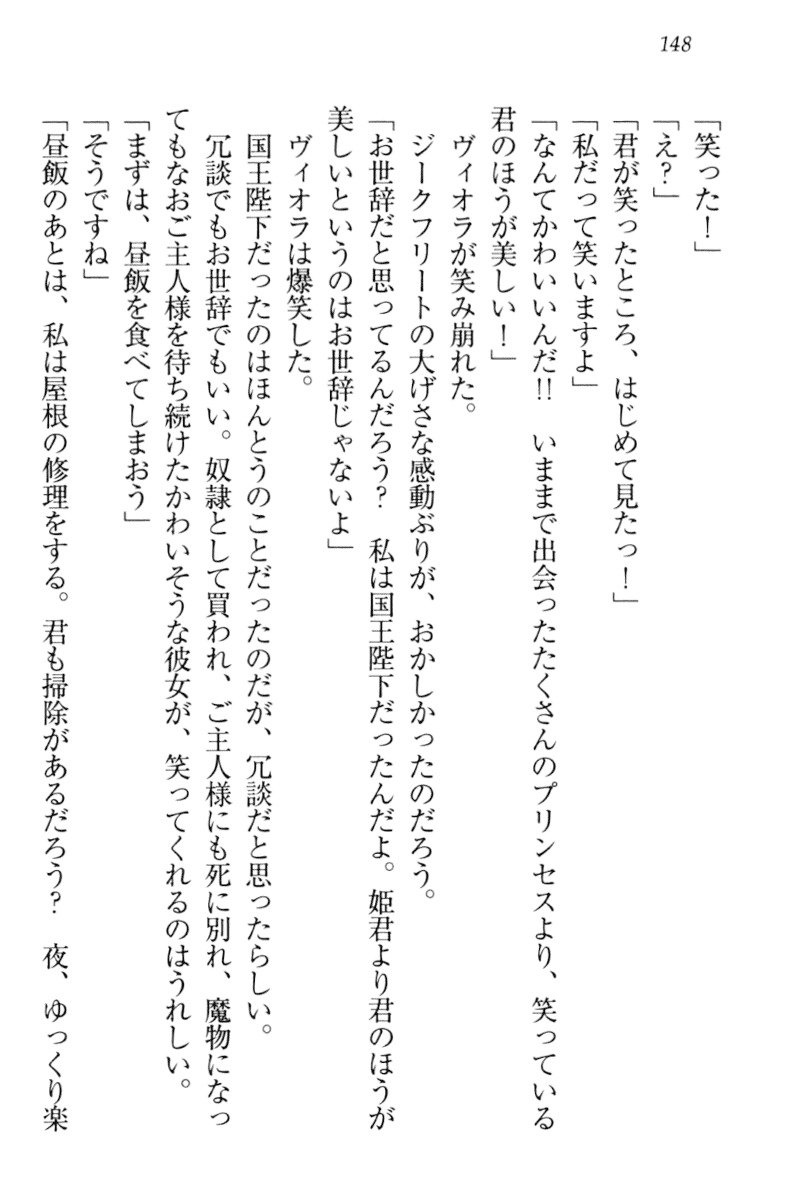 148
「笑った！」
「え？」
「君が笑ったところ、はじめて見たっ！」
「私だって笑いますよ」
「なんてかわいいんだ!!　いままで出会ったたくさんのプリンセスより、笑っている
君のほうが美しい！」
　ヴィオラが笑み崩れた。
　ジークフリートの大げさな感動ぶりが、おかしかったのだろう。
「お世辞だと思ってるんだろう？　私は国王陛下だったんだよ。姫君より君のほうが
美しいというのはお世辞じゃないよ」
　ヴィオラは爆笑した。
　国王陛下だったのはほんとうのことだったのだが、冗談だと思ったらしい。
　冗談でもお世辞でもいい。奴隷として買われ、ご主人様にも死に別れ、魔物になっ
てもなおご主人様を待ち続けたかわいそうな彼女が、笑ってくれるのはうれしい。
「まずは、昼飯を食べてしまおう」
「そうですね」
「昼飯のあとは、私は屋根の修理をする。君も掃除があるだろう？　夜、ゆっくり楽